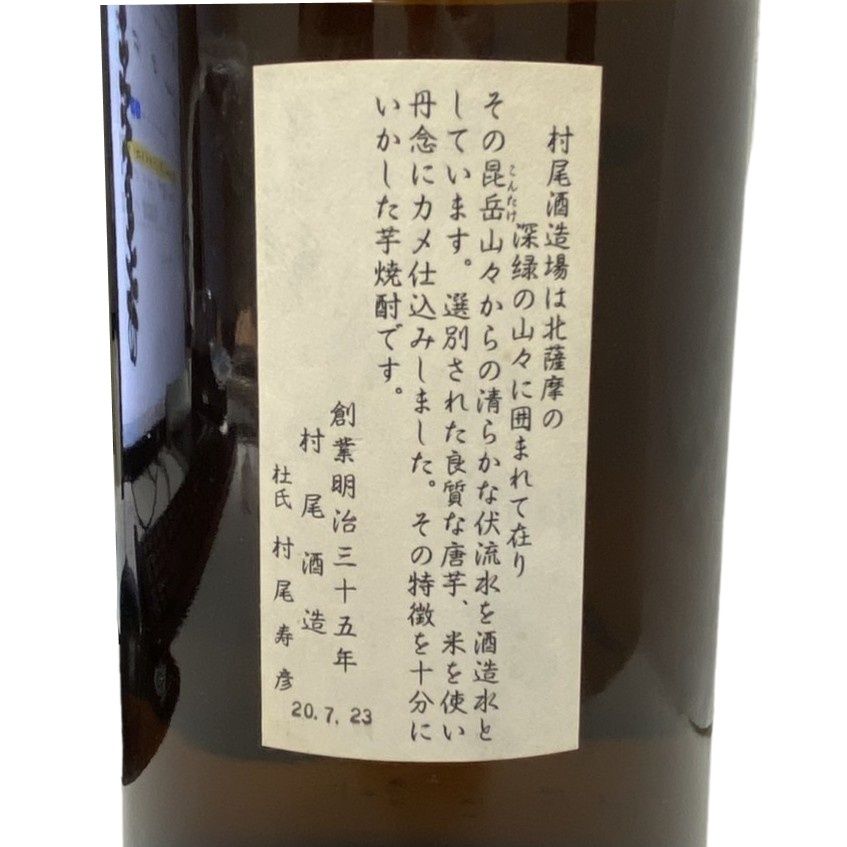 村尾酒造場は北薩摩の
深緑の山々に囲まれて在り
その昆岳山々からの清らかな伏流水を酒造水と
こんたけ
しています。選別された良質な唐芋、米を使い
丹念にカメ仕込みしました。その特徴を十分に
いかした芋焼酎です。
創業明治三十五年
村尾酒造
杜氏 村尾寿彦
20.7.23